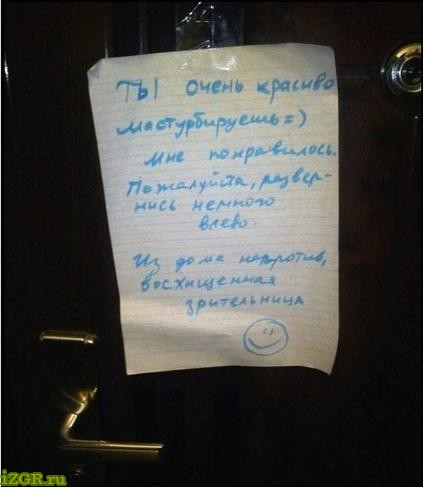 ТЫ очень красиво
мастурбируешь=)
мне понравилось.
Пожалуйста, развер-
нись немного
влево.
Из дома напротив,
восхищенная
зрительница
iZGR.ru